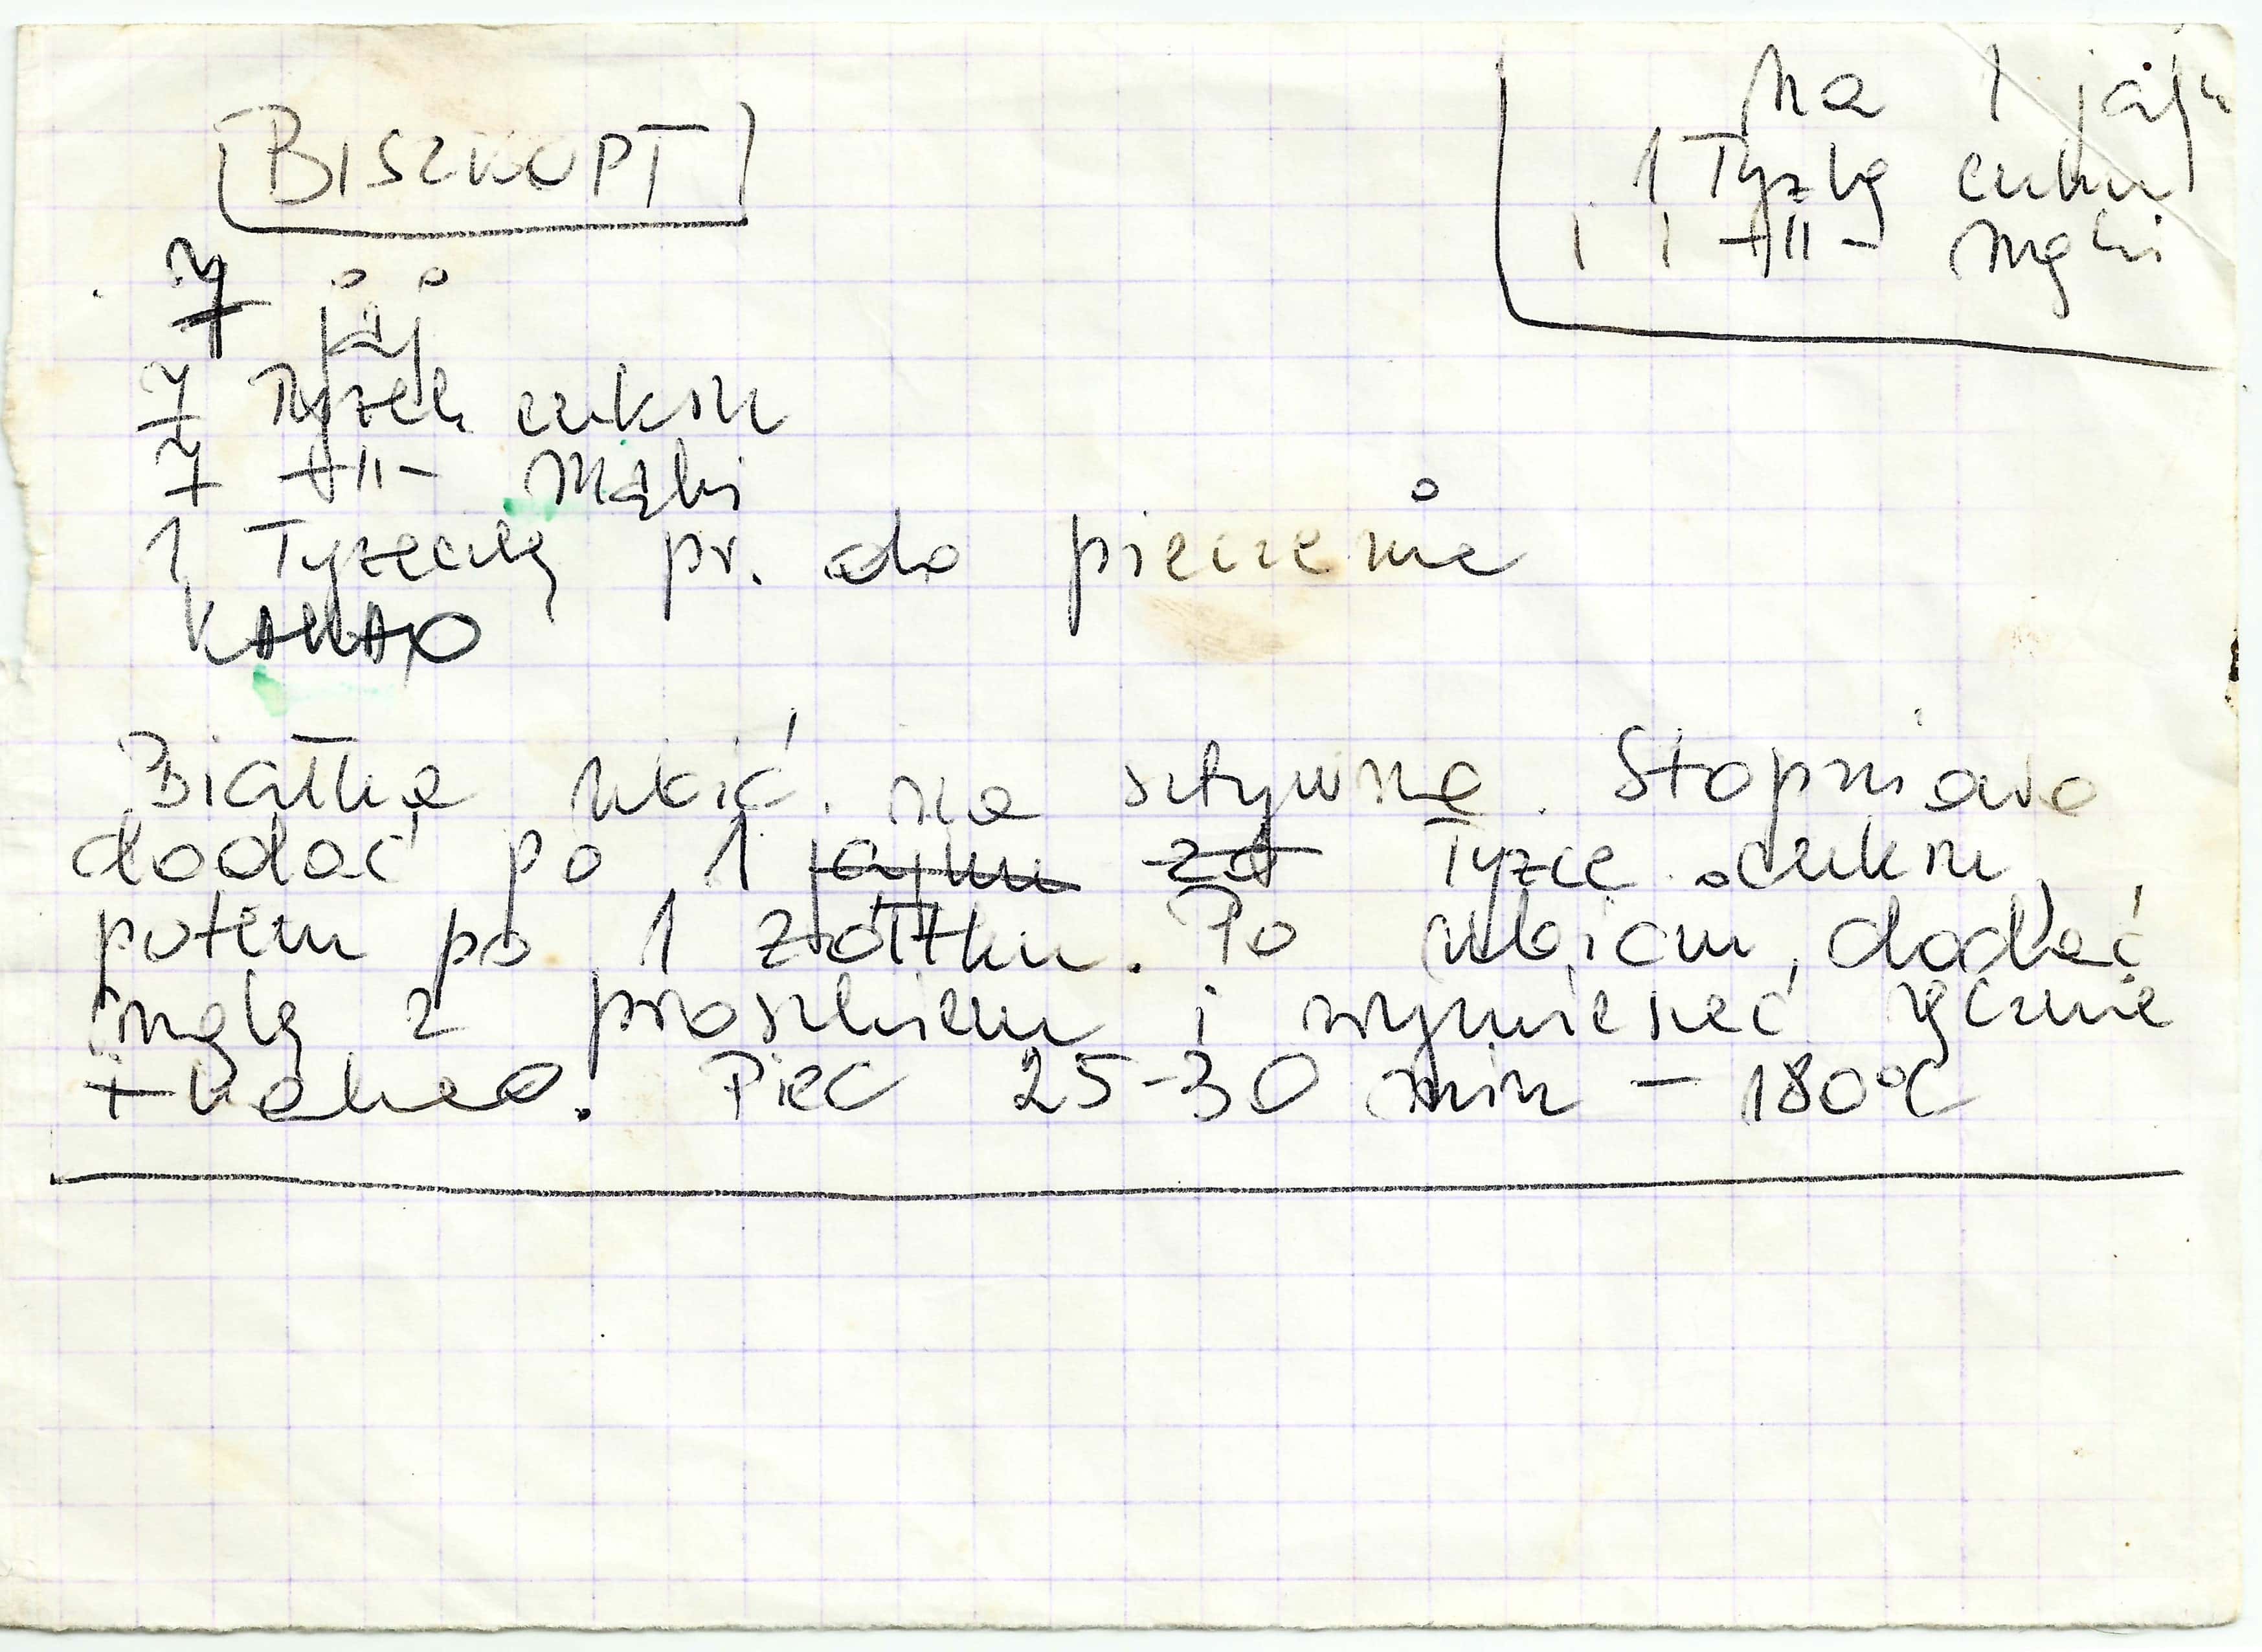 BISZKOPT
na 1 jajk
1 łyżkę cukru
i 1 -||- mąki
7 jaj
7 łyżek cukru
7 -||- mąki
1 łyżeczkę pr. do pieczenia
KAKAO
Białka ubić na sztywno. Stopniowo
dodać po 1 jajku za łyżce cukru,
potem po 1 żółtku. Po ubiciu, dodać
mąkę z proszkiem i wymieszać ręcznie
+ kakao. Piec 25-30 min - 180°C